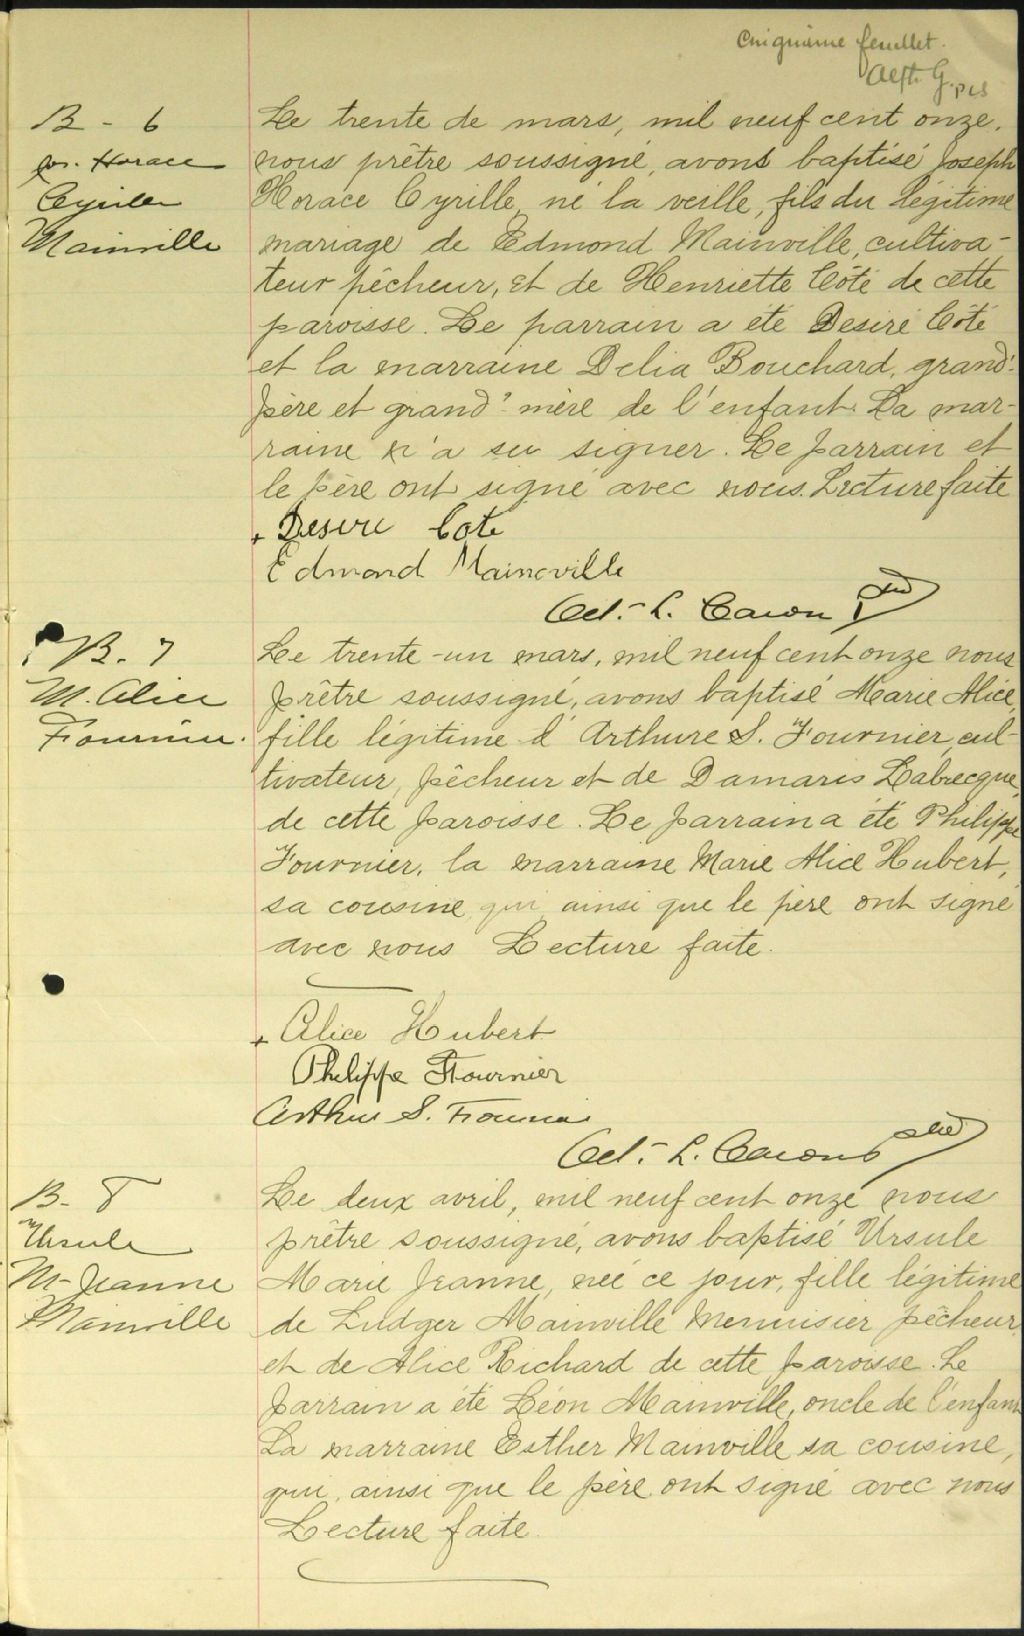 Cinquième feuillet.
B - 6
Jos. Horace
Cyrille
Mainville
Le trente de mars, mil neuf cent onze,
nous prêtre soussigné, avons baptisé Joseph
Horace Cyrille, né la veille, fils du légitime
mariage de Edmond Mainville, cultiva-
teur pêcheur, et de Henriette Côté de cette
paroisse. Le parrain a été Desiré Côté
et la marraine Delia Bouchard, grand'-
père et grand'-mère de l'enfant. La mar-
raine n'a su signer. Le parrain et
le père ont signé avec nous. Lecture faite
+ Desire Cote
Edmond Maineville
Oct. - L. Caron ptre
B. 7
M. Alice
Fournier.
Le trente-un mars, mil neuf cent onze nous
prêtre soussigné, avons baptisé Marie Alice,
fille légitime d'Arthure S. Fournier, cul-
tivateur, pêcheur et de Damaris Labrecque,
de cette paroisse. Le parrain a été Philippe
Fournier, la marraine Marie Alice Hubert,
sa cousine, qui ainsi que le père ont signé
avec nous Lecture faite.
+ Alice Hubert
Philippe Fournier
Arthur S. Fournier
Oct. - L. Caron ptre
B. 8
Ursule
M-Jeanne
Mainville
Le deux avril, mil neuf cent onze nous
prêtre soussigné, avons baptisé Ursule
Marie Jeanne, née ce jour, fille légitime
de Ludger Mainville Menuisier pêcheur
et de Alice Richard de cette paroisse. Le
parrain a été Léon Mainville, oncle de l'enfant
La marraine Esther Mainville sa cousine,
qui, ainsi que le père ont signé avec nous
Lecture faite.